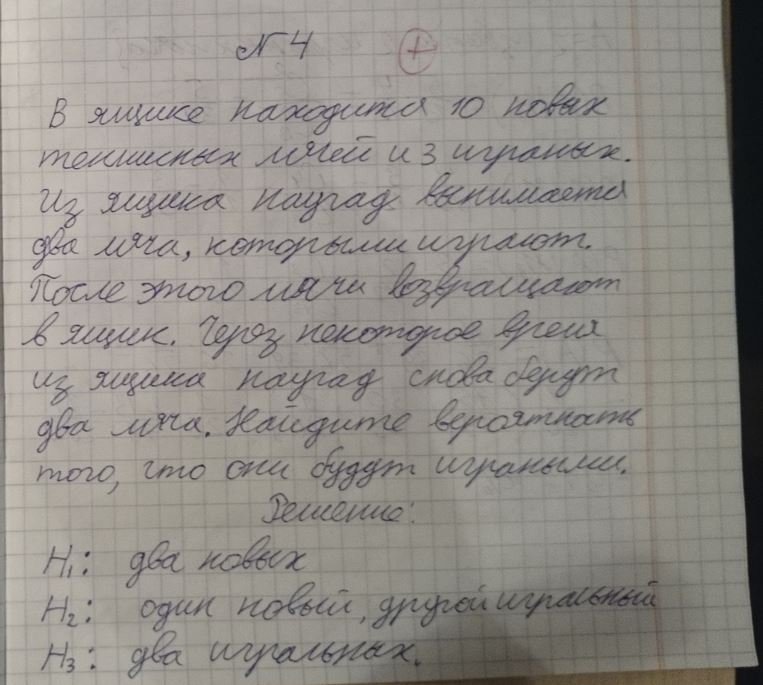 № 4 +
В ящике находится 10 новых
теннисных мячей и 3 играных.
Из ящика наугад вынимается
два мяча, которыми играют.
После этого мячи возвращают
в ящик. Через некоторое время
из ящика наугад снова берут
два мяча. Найдите вероятность
того, что они будут играными.
Решение:
H₁: два новых
H₂: один новый, другой игральный
H₃: два игральных.